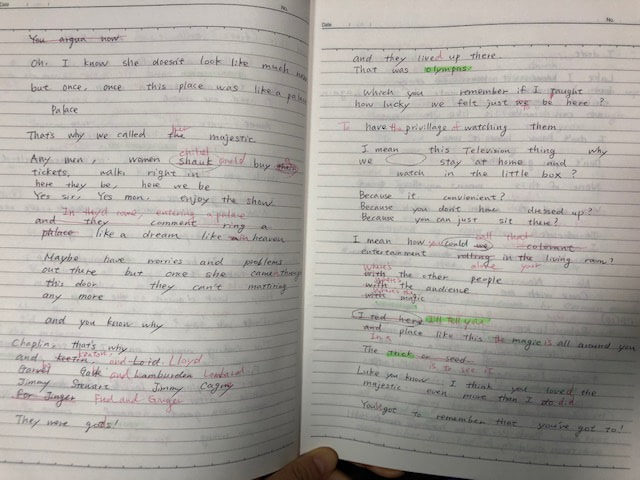 Date
No.
You argun now.
Oh. I know she doesn't look like much now
but once, once this place was like a palace
Palace
That's why we called the her majestic
child
Any men, women could buy
tickets, walk right in
here they be, here we be
Yes sir, Yes mon, enjoy the show.
In they'd come, entering a palace
and they comment ring a
phlace like a dream like heaven
Maybe have worries and problems
out there but once she came through
this door they can't mattring
any more
and you know why
Chaplin, that's why
and keaton, and Loid. Lloyd
Garvo Gable and Lamburden Lombard
Jimmy Stewart Jimmy Cagny
for Jinger Fred and Ginger
They were gods!
Date
No.
and they lived up there.
That was olympas.
Which you remember if I taught
how lucky we felt just we be here?
To have the privillage of watching them.
I mean this Television thing why
we stay at home and
watch in the little box?
Because it convienient?
Because you don't have dressed up?
Because you can just sit there?
I mean how you could we call that
entertainment in the living room?
Where's alone your
with the other people
with the audience
with magic
I tod here I'll tell you
and place like this the magic is all around you
In a
The trick or seed
is to see it
Luke you know I think you loved the
majestic even more than I do did
You've got to remember that you've got to!